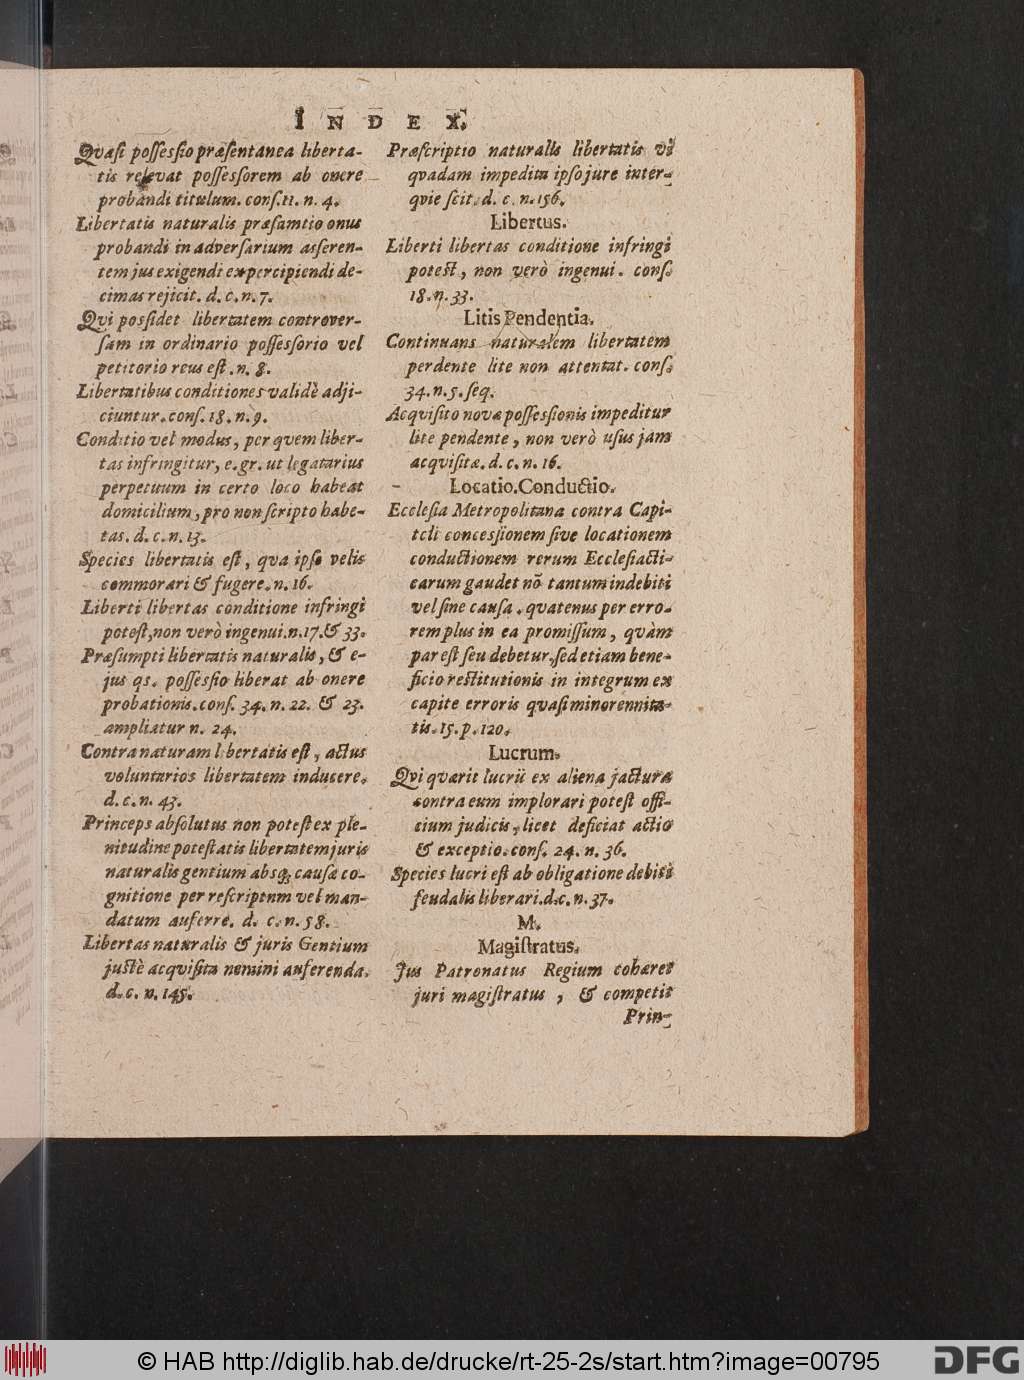 INDEX.
Qvaſi poſſeſſio præſentanea liberta-
tis relevat poſſeſſorem ab onere
probandi titulum. conſ. 11. n. 4.
Libertatis naturalis præſumtio onus
probandi in adverſarium aſſeren-
tem jus exigendi & percipiendi de-
cimas rejicit. d. c. n. 7.
Qvi poſſidet libertatem controver-
ſam in ordinario poſſeſſorio vel
petitorio reus eſt. n. 8.
Libertatibus conditiones validè adji-
ciuntur. conſ. 18. n. 9.
Conditio vel modus, per quem liber-
tas infringitur, e. gr. ut legatarius
perpetuum in certo loco habeat
domicilium, pro non ſcripto habe-
tas. d. c. n. 13.
Species libertatis eſt, qva ipſe velis
commorari & fugere. n. 16.
Liberti libertas conditione infringi
poteſt, non verò ingenui. n. 17. & 33.
Præſumpti libertatis naturalis, & e-
jus qs. poſſeſſio liberat ab onere
probationis. conſ. 34. n. 22. & 23.
ampliatur n. 24.
Contra naturam libertatis eſt, actus
voluntarios libertatem inducere.
d. c. n. 43.
Princeps abſolutus non poteſt ex ple-
nitudine poteſtatis libertatem juris
naturalis gentium absq; cauſæ co-
gnitione per reſcriptum vel man-
datum auferre. d. c. n. 58.
Libertas naturalis & juris Gentium
juſtè acqviſita nemini auferenda.
d. c. n. 145.
Præſcriptio naturalis libertatis vi
qvadam impedita ipſo jure inter-
qvie ſcit. d. c. n. 156.
Libertus.
Liberti libertas conditione infringi
poteſt, non verò ingenui. conſ.
18. n. 33.
Litis Pendentia.
Continuans naturalem libertatem
perdente lite non attentat. conſ.
34. n. 5. ſeq.
Acqviſito novæ poſſeſſionis impeditur
lite pendente, non verò uſus jam
acqviſitæ. d. c. n. 16.
Locatio. Conductio.
Eccleſia Metropolitana contra Capi-
tuli conceſſionem ſive locationem
conductionem rerum Eccleſiaſti-
carum gaudet nõ tantum indebiti
vel ſine cauſa. qvatenus per erro-
rem plus in ea promiſſum, qvàm
par eſt ſeu debetur, ſed etiam bene-
ficio reſtitutionis in integrum ex
capite erroris qvaſi minorennita-
tis. 15. p. 120.
Lucrum.
Qvi qværit lucrũ ex aliena jactura
contra eum implorari poteſt offi-
cium judicis, licet deficiat actio
& exceptio. conſ. 24. n. 36.
Species lucri eſt ab obligatione debiti
feudalis liberari. d. c. n. 37.
M.
Magiſtratus.
Jus Patronatus Regium cohæret
juri magiſtratus, & competit
Prin-
© HAB http://diglib.hab.de/drucke/rt-25-2s/start.htm?image=00795
DFG